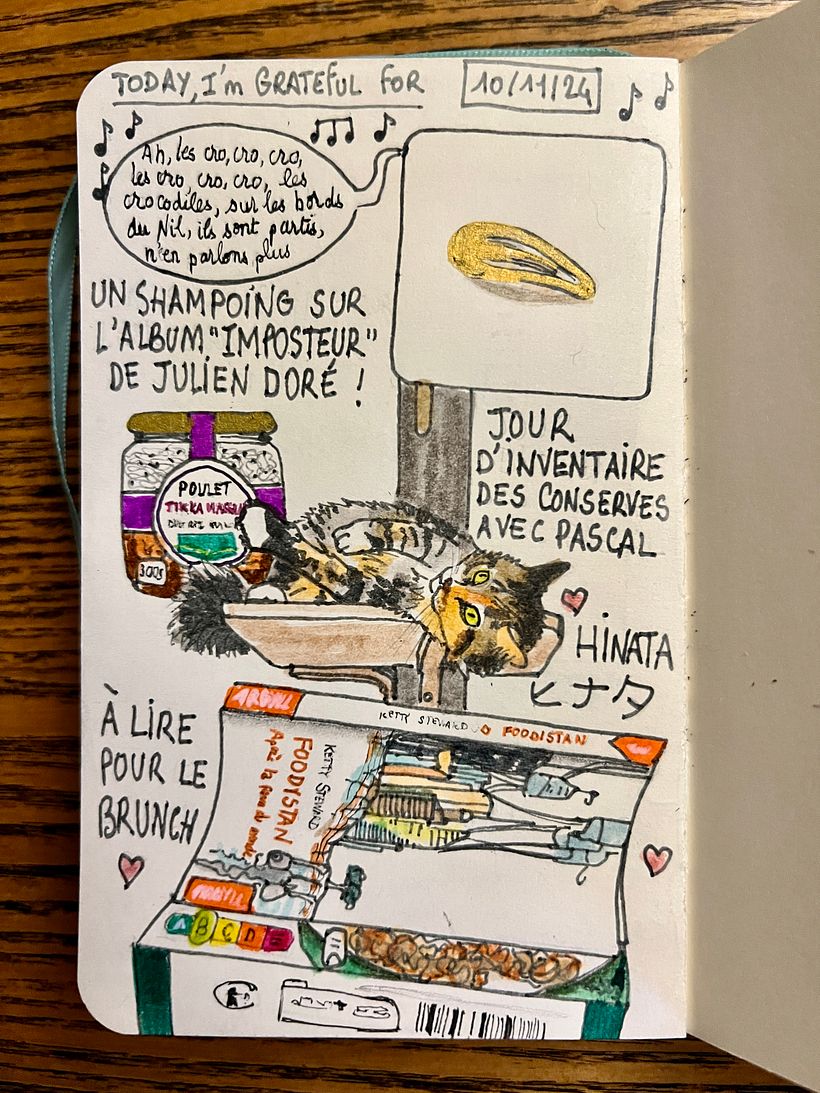 TODAY, I'm GRATEFUL FOR
10/11/24
Ah, les cro, cro, cro,
les cro, cro, cro, les
crocodiles, sur les bords
du Nil, ils sont partis,
n'en parlons plus
UN SHAMPOING SUR
L'ALBUM "IMPOSTEUR"
DE JULIEN DORÉ !
JOUR
D'INVENTAIRE
DES CONSERVES
AVEC PASCAL
POULET
TIKKA MASALA
300g
HINATA
ヒナタ
À LIRE
POUR LE
BRUNCH
ARGYLL
KETTY STEWARD
FOODISTAN
KETTY STEWARD
FOODISTAN
Après la fin du monde
ARGYLL
A B C D E